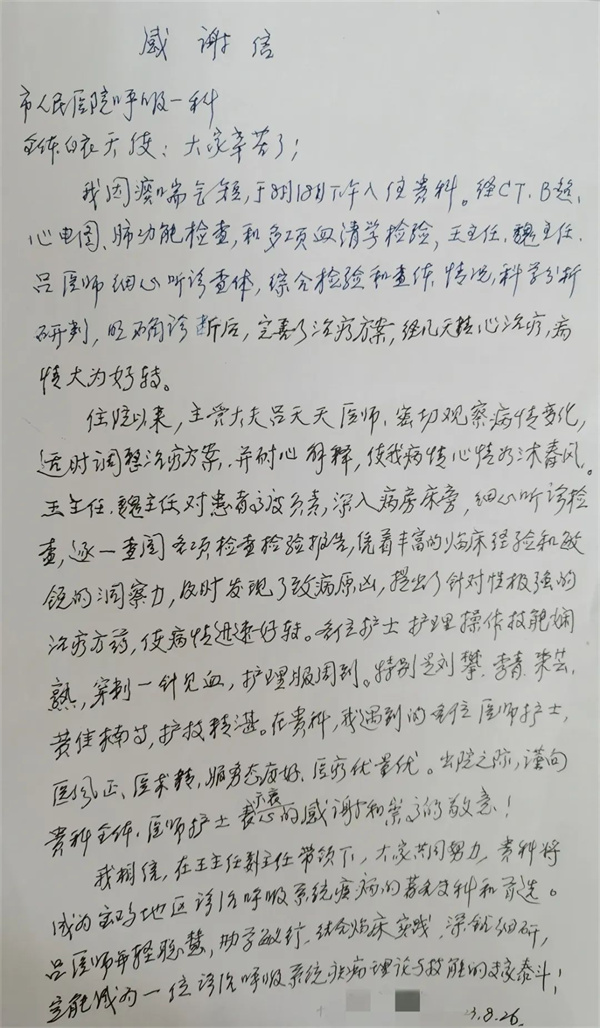 感谢信
市人民医院呼吸一科
全体白衣天使：大家辛苦了！
我因痰喘气短，于8月18日下午入住贵科。经CT、B超、
心电图、肺功能检查，和多项血清学检验，王主任、魏主任、
吕医师细心听诊查体，综合检验和查体情况，科学分析
研判，明确诊断后，完善了治疗方案，经几天精心治疗，病
情大为好转。
住院以来，主管大夫吕天天医师，密切观察病情变化，
适时调整治疗方案，并耐心解释，使我病情心情如沐春风。
王主任、魏主任对患者高度负责，深入病房床旁，细心听诊检
查，逐一查阅各项检查检验报告，凭着丰富的临床经验和敏
锐的洞察力，及时发现了致病原凶，提出了针对性极强的
治疗方药，使病情迅速好转。各位护士护理操作技能娴
熟，穿刺一针见血，护理服周到。特别是刘攀、李青、荣芸、
黄佳楠等，护技精湛。在贵科，我遇到的每位医师护士，
医风正、医术精，服务态度好、医疗优量优。出院之际，谨向
贵科全体医师护士表示衷心的感谢和崇高的敬意！
我相信，在王主任魏主任带领下，大家共同努力，贵科将
成为宝鸡地区诊治呼吸系统疾病的著名专科和首选。
吕医师年轻聪慧，勤学敏行，结合临床实践，深钻细研，
定能成为一位诊治呼吸系统疾病理论与技能的专家泰斗！
3.8.26.